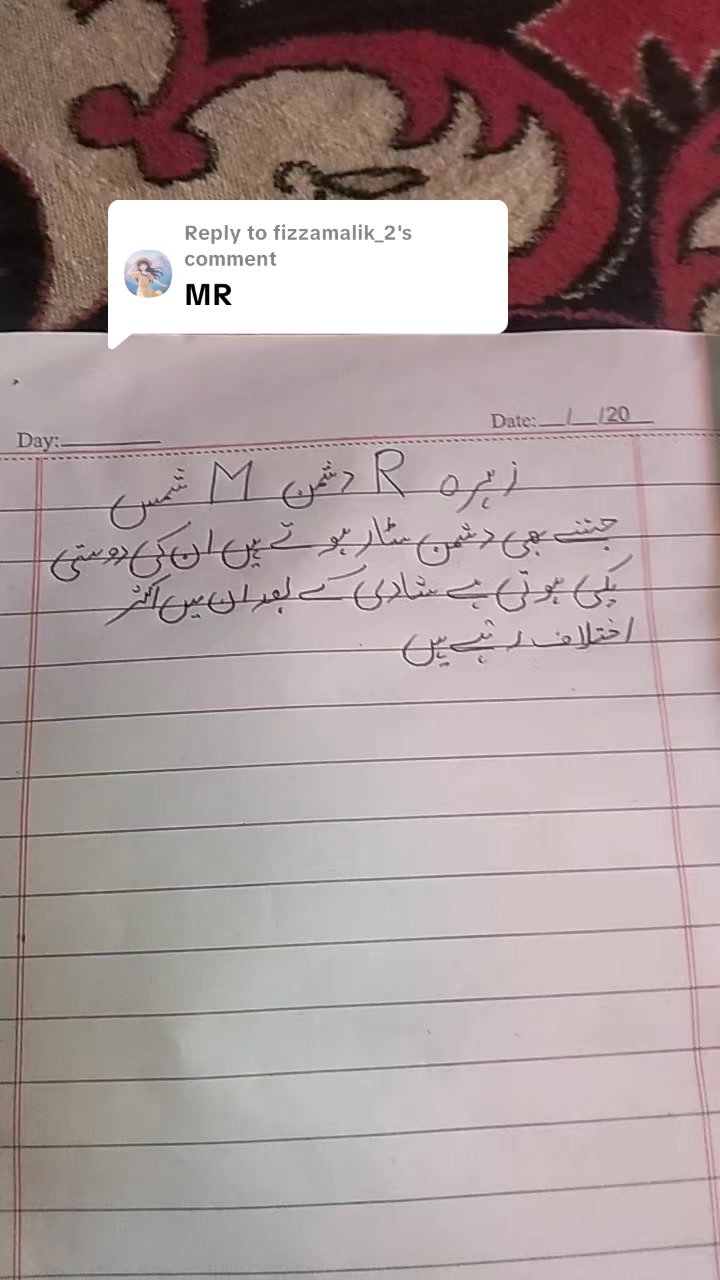 Reply to fizzamalik_2's
comment
MR
Day:
Date: / /20
زہرہ R دشمن M شمس
جتنے بھی دشمن سٹار ہو تے ہیں ان کی دوستی
پکی ہوتی ہے شادی کے بعد ان میں اکثر
اختلاف رہتے ہیں